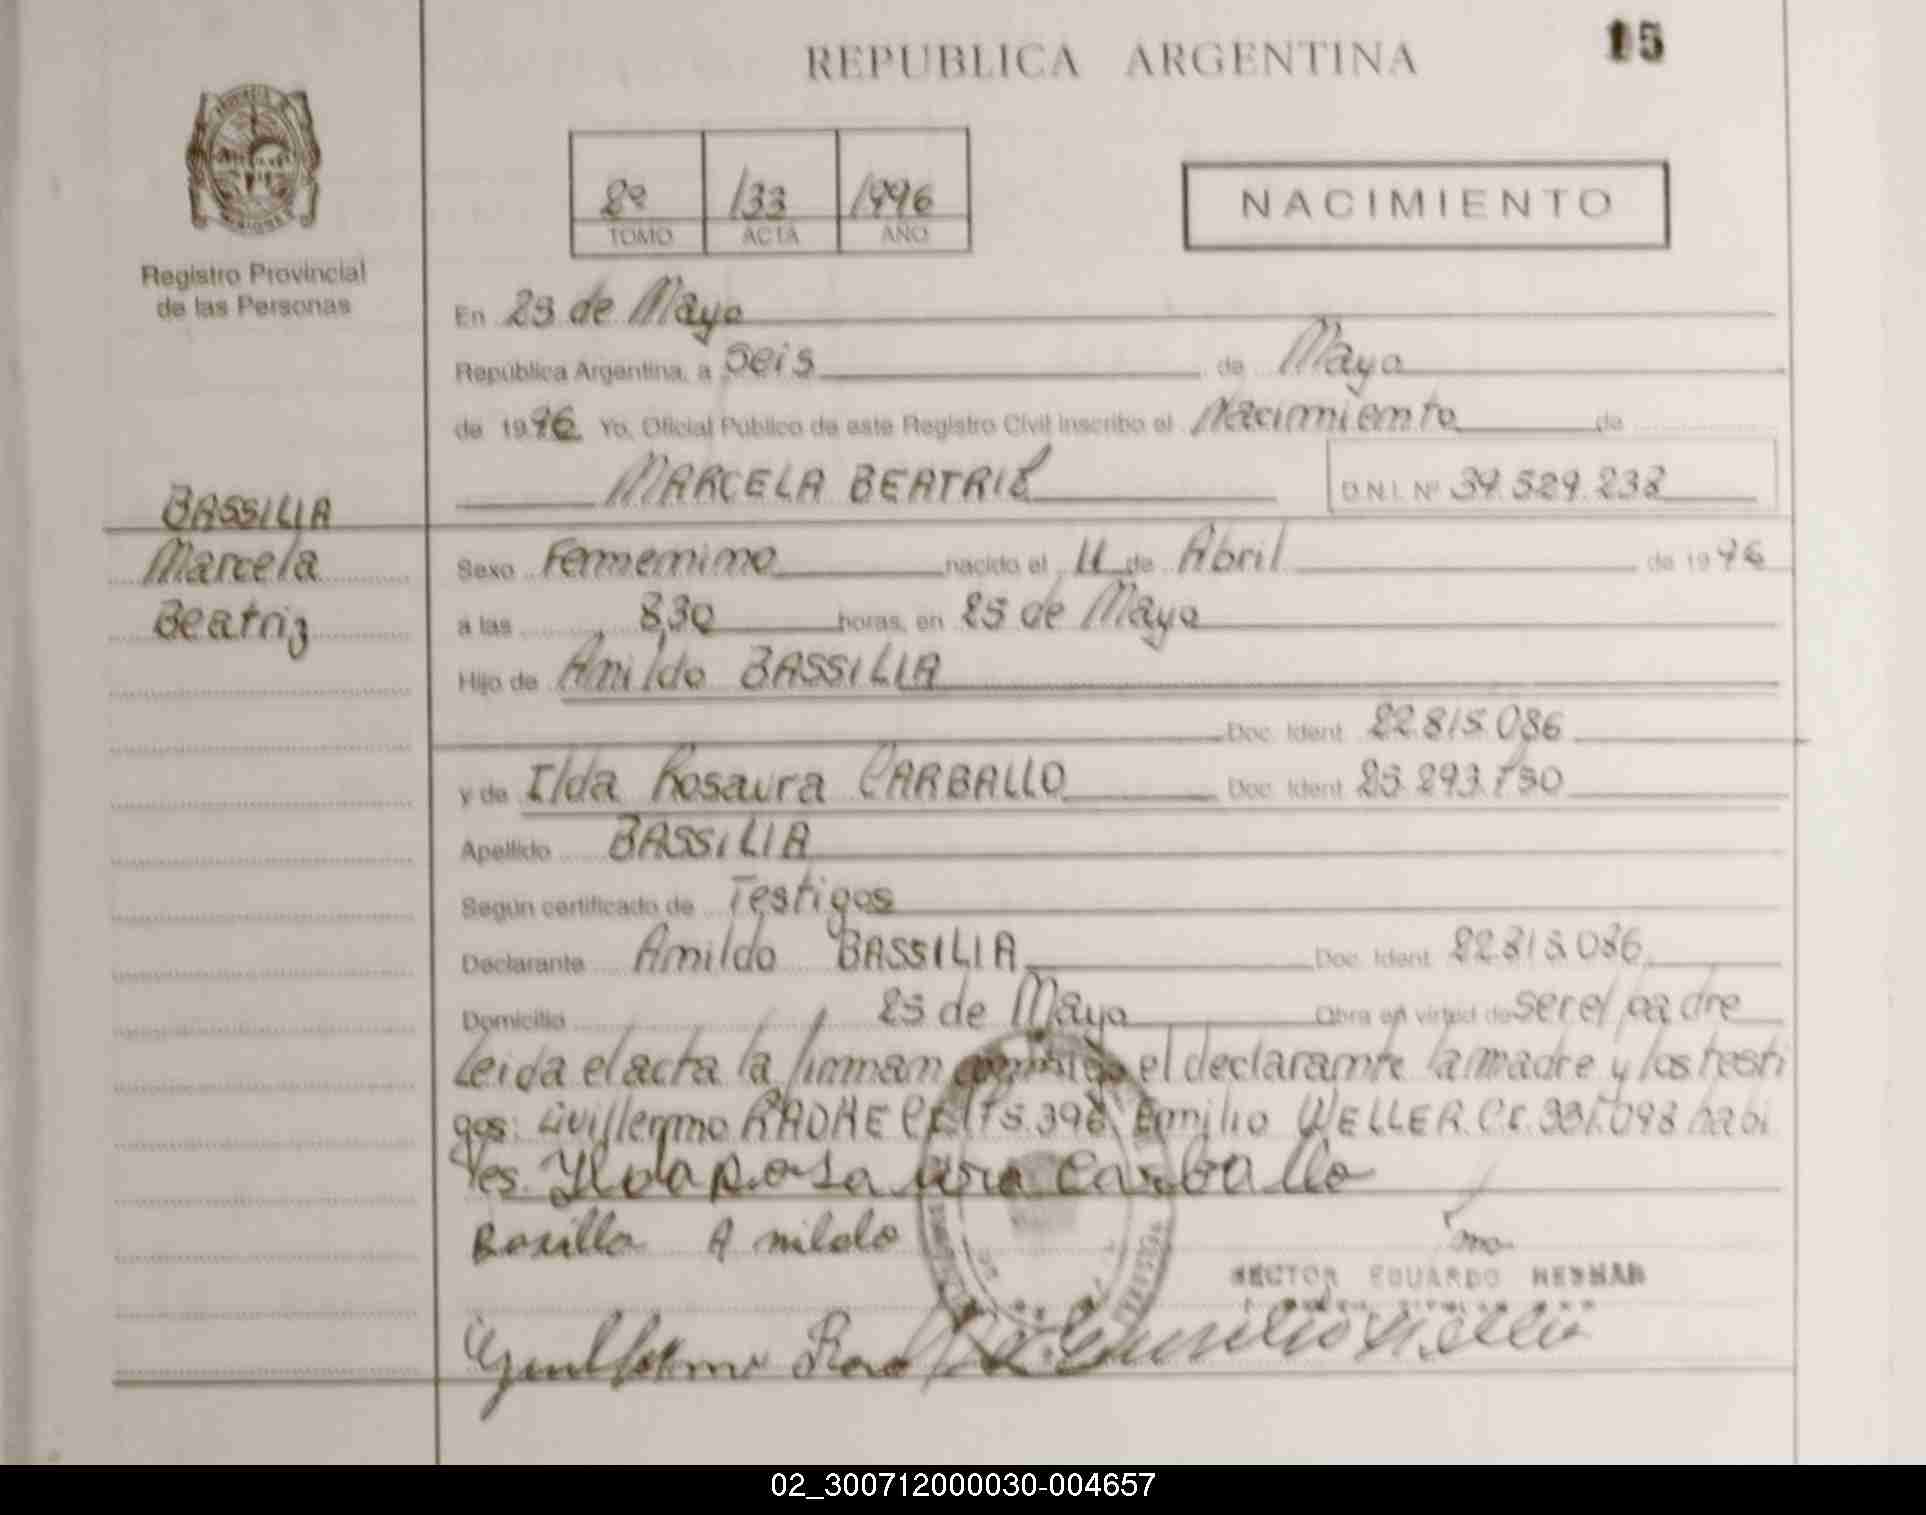 15
REPUBLICA ARGENTINA
8º 133 1996
TOMO ACTA AÑO
NACIMIENTO
Registro Provincial
de las Personas
BASSILIA
Marcela
Beatriz
En 25 de Mayo
República Argentina, a Seis de Mayo
de 1996 Yo, Oficial Público de este Registro Civil inscribo el Nacimiento de
MARCELA BEATRIZ D.N.I. Nº 39.529.232
Sexo Femenino nacido el 11 de Abril de 1996
a las 8,30 horas, en 25 de Mayo
Hijo de Amildo BASSILIA
Doc. Ident. 22.815.086
y de Ilda Rosaura CARBALLO Doc. Ident. 25.293.750
Apellido BASSILIA
Según certificado de Testigos
Declarante Amildo BASSILIA Doc. Ident. 22.815.086
Domicilio 25 de Mayo Obra en virtud de ser el padre
Leida el acta la firman conmigo el declarante la madre y los testi
gos: Guillermo Emilio WELLER habi
les. Ylda Rosa ura Carballo
Basilla Amildo
HECTOR EDUARDO
02_300712000030-004657